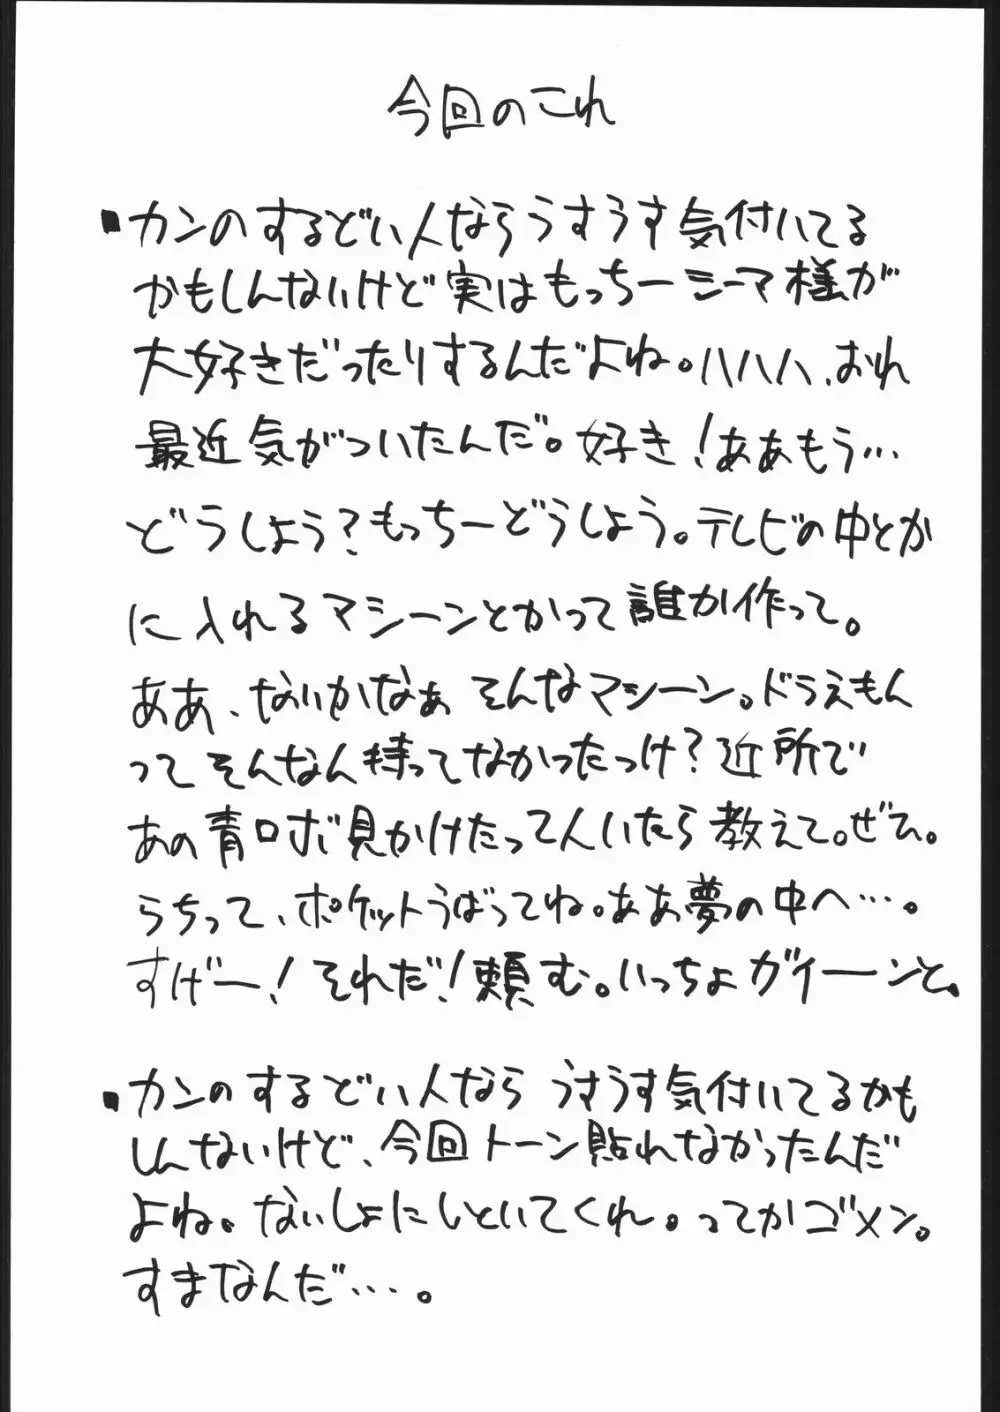 今回のこれ
■カンのするどい人ならうすうす気付いてる
かもしんないけど実はもっちーシーマ様が
大好きだったりするんだよね。ハハハ、おれ
最近気がついたんだ。好き!ああもう…
どうしよう?もっちーどうしよう。テレビの中とか
に入れるマシーンとかって誰か作って。
ああ、ないかなぁそんなマシーン。ドラえもん
ってそんなん持ってなかったっけ?近所で
あの青ロボ見かけたって人いたら教えて。ぜひ。
らちって、ポケットうばってね。ああ夢の中へ…。
すげー!それだ!頼む。いっちょガイーンと。
■カンのするどい人なら うすうす気付いてるかも
しんないけど、今回トーン貼れなかったんだ
よね。ないしょにしといてくれ。ってかゴメン。
すまなんだ…。